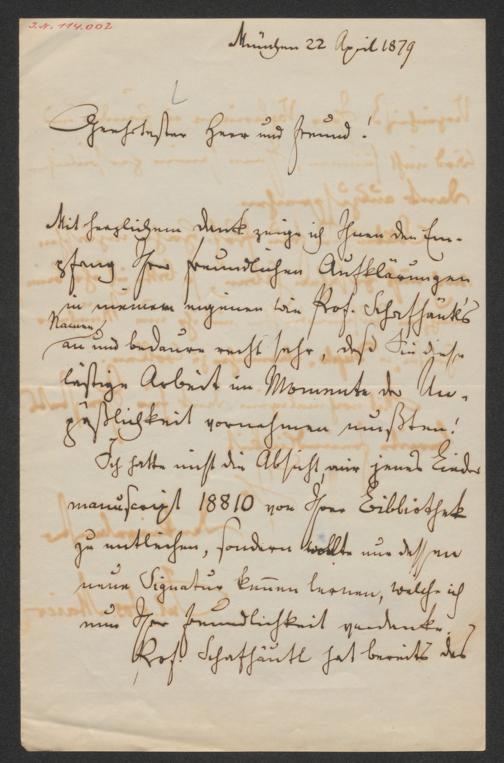 I.N. 114.002
München 22 April 1879
Geehrtester Herr und Freund!
Mit herzlichem Dank zeige ich Ihnen den Em-
pfang Ihrer freundlichen Aufklärungen
in meinem eigenen wie Prof. Schafhäutl's
Namen
an und bedaure recht sehr, daß Sie diese
lästige Arbeit im Momente der Un-
päßlichkeit vornehmen mußten!
Ich hatte nicht die Absicht, mir jenes Lieder
manuscript 18810 von Ihrer Bibliothek
zu entleihen, sondern wollte nur dessen
neue Signatur kennen lernen, welche ich
nun Ihrer Freundlichkeit verdanke.
Prof. Schafhäutl hat bereits das